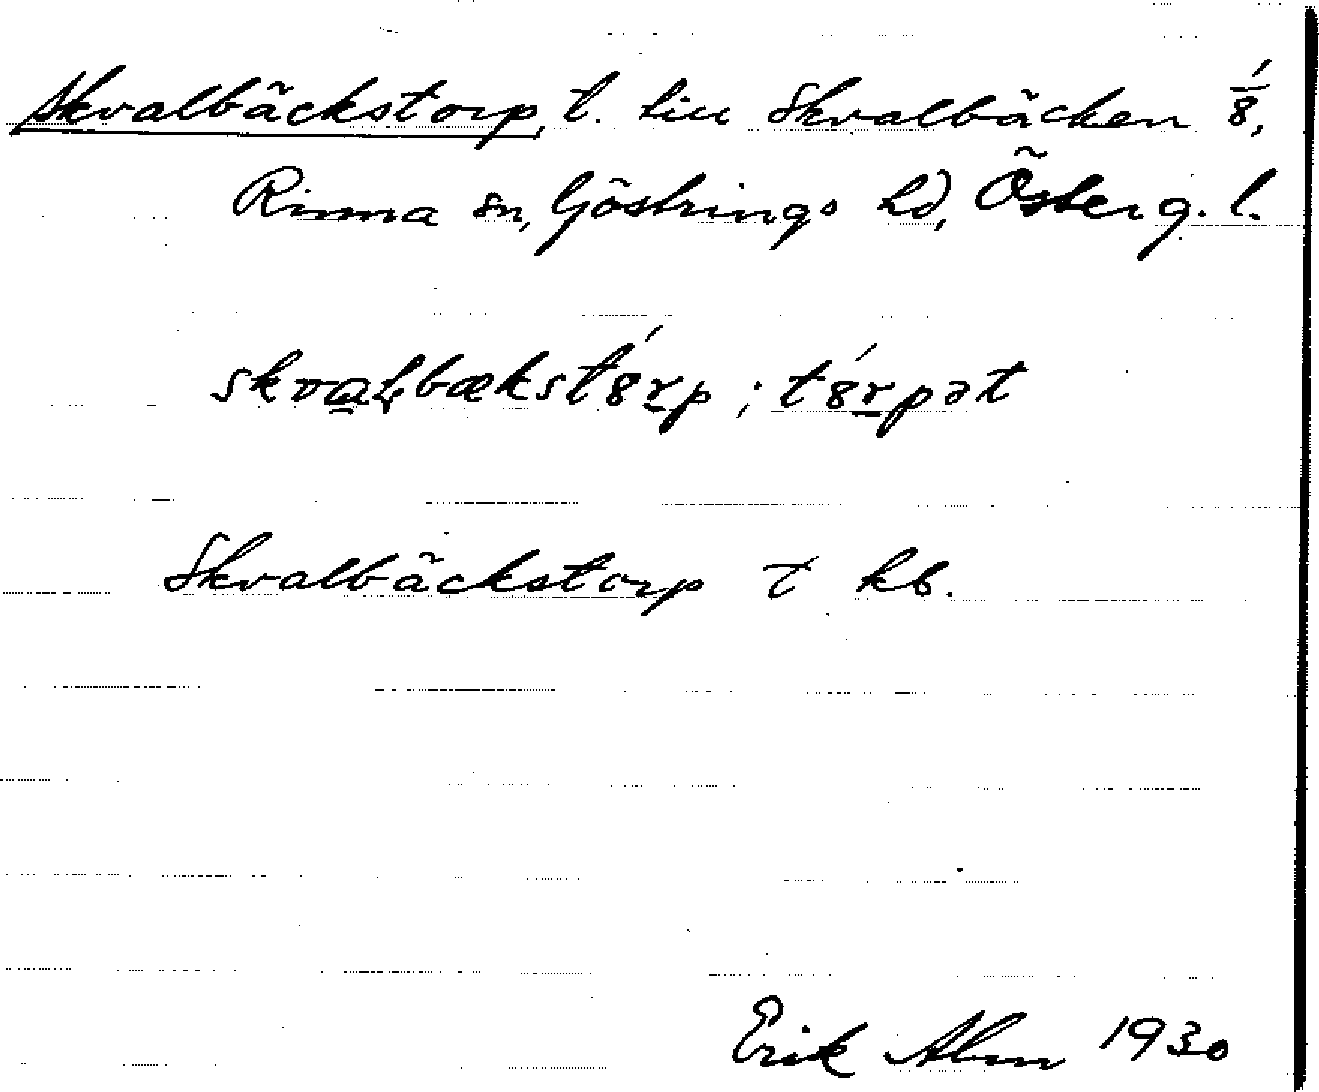 Skvalbäckstorp, t. till Skvalbäcken 1/8,
Rinna sn, Göstrings hd, Österg. l.
skvaḷbækstȣ́rp ; tȣ́rpət
Skvalbäckstorp t kb.
Erik Alm 1930